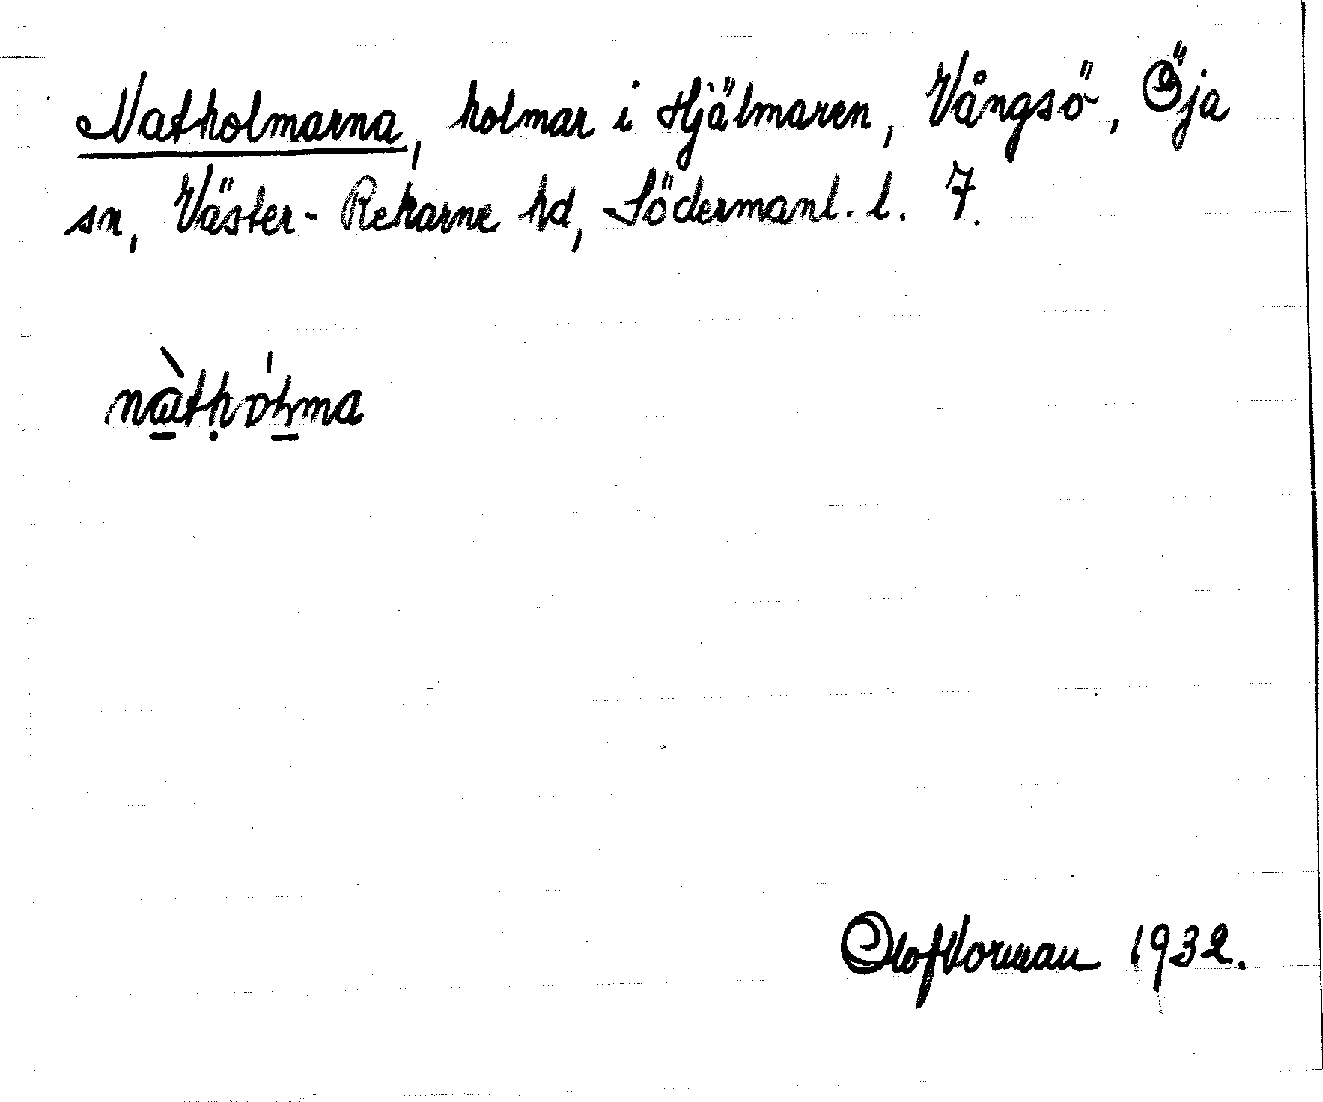 Natholmarna, holmar i Hjälmaren, Vångsö, Öja
sn, Väster-Rekarne hd, Södermanl. l. 7.
nàthólma
Olof Vorman 1932.